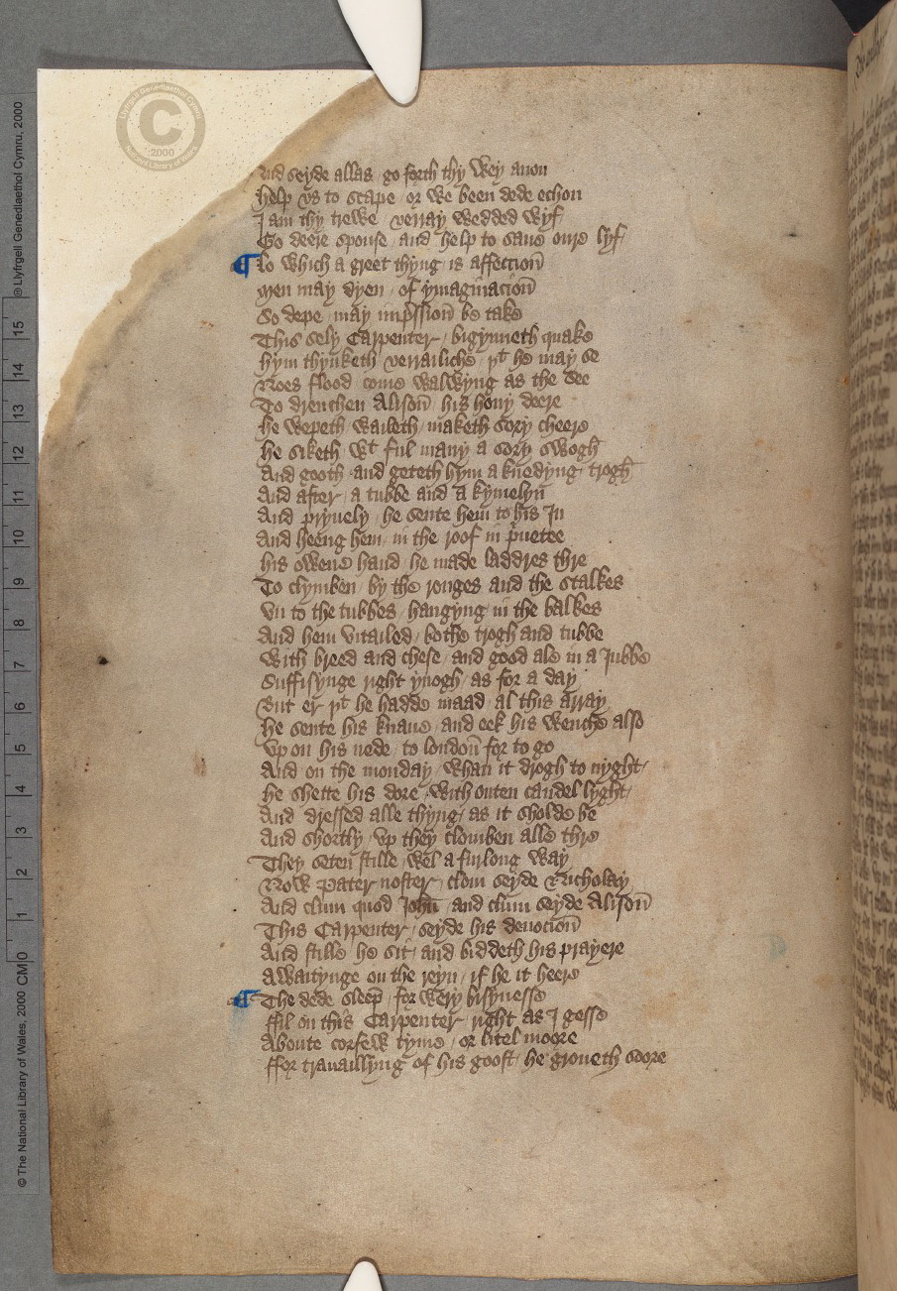 And seyde allas go forth thy wey anon
help vs to scape / or we been dede echon
I am thy trewe / verray wedded wyf
Go deere spouse / and help to saue oure lyf
¶ lo which a greet thyng / is affeccion̄
Men may dyen / of ymaginacion̄
So depe / may impssion̄ be take
This sely Carpenter / bigynneth quake
hym thynketh verrailiche / yt he may se
Noes flood / come walwyng as the See
To drenchen Alison̄ / his hony deere
he wepeth waileth / maketh sory cheere
he siketh / wt ful many a sory swogh
And gooth / and geteth hym a knedyng trogh
And after / a tubbe and a kymelyn
And pryuely / he sente hem to his In
And heeng hem / in the roof in p̈uetee
his owene hand / he made laddres thre
To clymben / by the ronges and the stalkes
vn to the tubbes / hangyng in the balkes
And hem vitailed / bothe trogh and tubbe
With breed and chese / and good ale in a Iubbe
Suffisynge right ynogh / as for a day
But er yt he hadde maad / al this array
he sente his knaue / and eek his wenche also
vp on his nede / to london̄ for to go
And on the monday / whan it drogh to nyght /
he shette his dore / with outen candel lyght /
And dressed alle thyng / as it sholde be
And shortly / vp they clomben alle thre
They seten stille / wel a furlong way
Now Pater noster / clom seyde Nicholay
And clum quod Ioħn / and clum seyde Alison̄
This Carpenter / seyde his deuocion̄
And stille he sit / and biddeth his prayere
Awaitynge on the reyn / if he it heere
¶ The dede sleep̄ / for wery bisynesse
ffil on this Carpenter / right as I gesse
Aboute corfew tyme / or litel moore
ffor trauaillyng of his goost / he groneth soore
® Llyfrgell Genedlaethol Cymru, 2000
© The National Library of Wales, 2000 CM 0 1 2 3 4 5 6 7 8 9 10 11 12 13 14 15
Llyfrgell Genedlaethol Cymru
C
2000
National Library of Wales